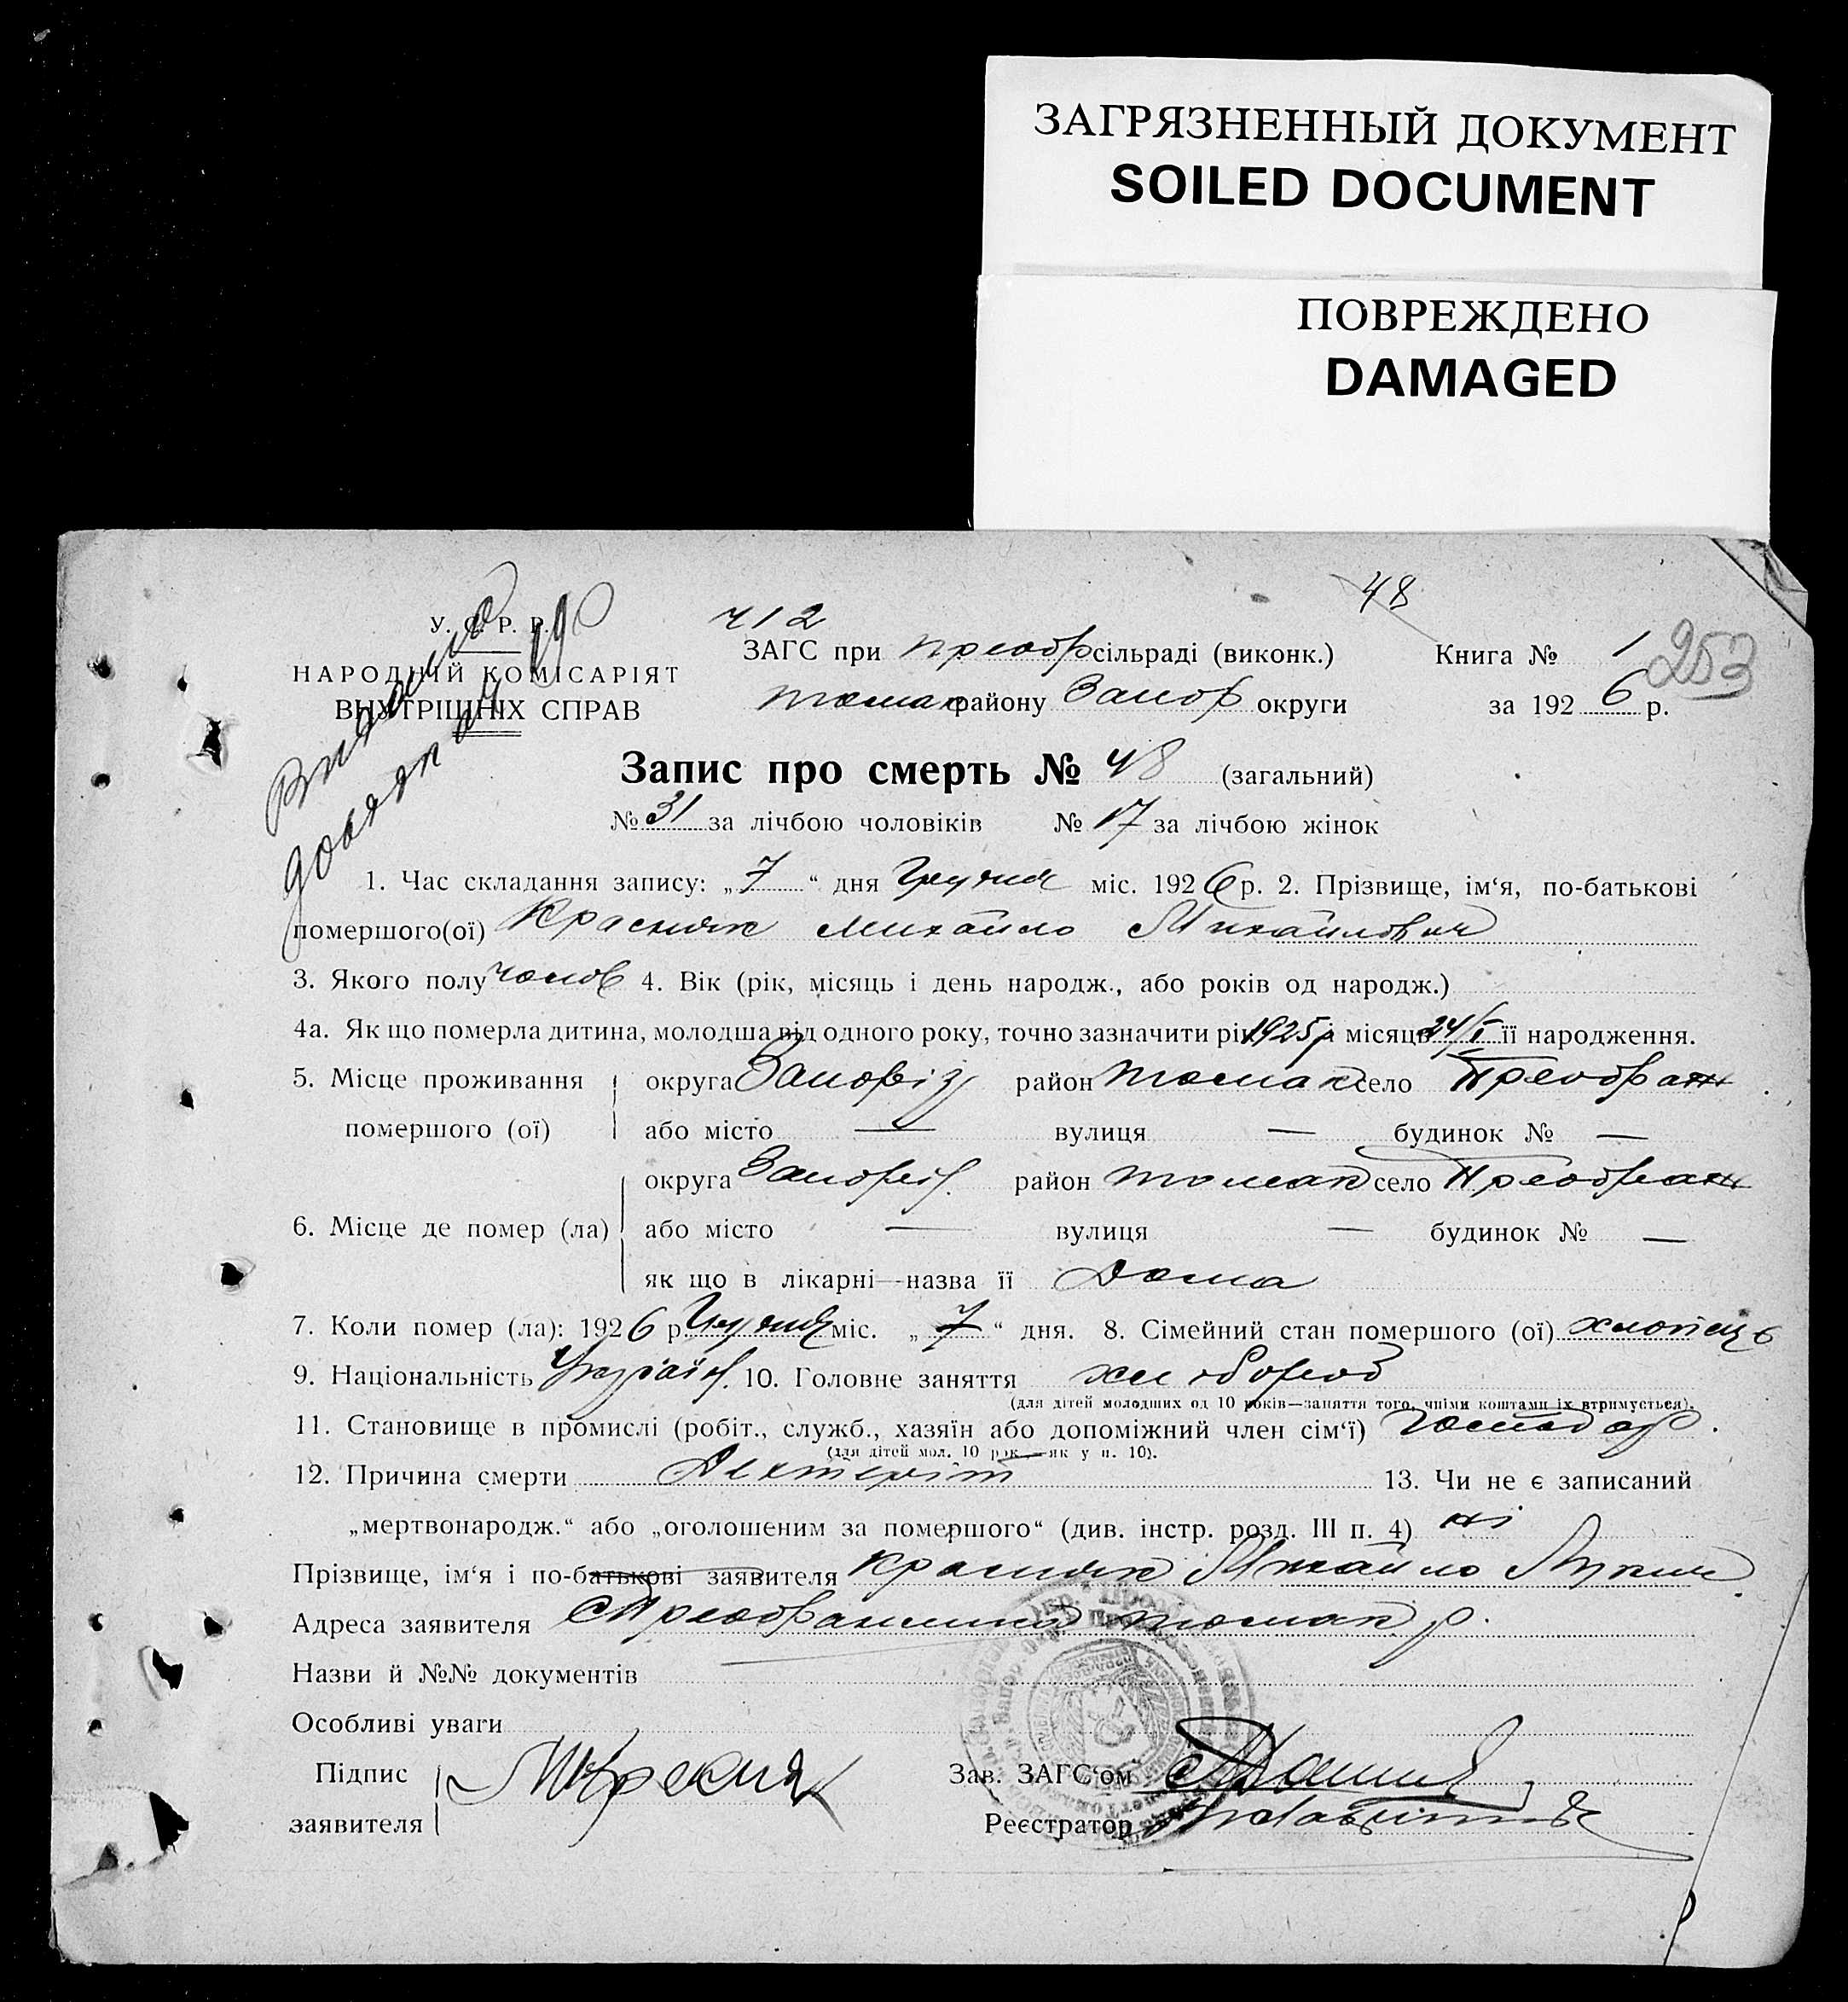 ЗАГРЯЗНЕННЫЙ ДОКУМЕНТ
SOILED DOCUMENT
ПОВРЕЖДЕНО
DAMAGED
48
У. С. Р. Р.
ч12
ЗАГС при преобр сільраді (виконк.) Книга № 1 253
НАРОДНІЙ КОМІСАРІЯТ
ВНУТРІШНІХ СПРАВ
токмак району Запор округи за 1926 р.
Запис про смерть № 48 (загальний)
№ 31 за лічбою чоловіків № 17 за лічбою жінок
1. Час складання запису: „7“ дня Грудня міс. 1926 р. 2. Прізвище, ім‘я, по-батькові
помершого(ої) Красняк Михайло Михайлович
3. Якого полу чолов 4. Вік (рік, місяць і день народж., або років од народж.)
4а. Як що померла дитина, молодша від одного року, точно зазначити рік 1925 р і місяць 24/I її народження.
5. Місце проживання округа Запоріз район токмак село Преображ
помершого (ої) або місто — вулиця — будинок № —
округа Запоріз. район токмак село Преображ
6. Місце де помер (ла) або місто — вулиця — будинок № —
як що в лікарні—назва її Дома
7. Коли помер (ла): 1926 р. Грудня міс. „7“ дня. 8. Сімейний стан помершого (ої) хлопець
9. Національність Україн. 10. Головне заняття хлібороб
(для дітей молодших од 10 років—заняття того, чиїми коштами їх втримується).
11. Становище в промислі (робіт., служб., хазяїн або допоміжний член сім‘ї) господар.
(для дітей мол. 10 рок.—як у п. 10).
12. Причина смерти Дехтеріт 13. Чи не є записаний
„мертвонародж.“ або „оголошеним за помершого“ (див. інстр. розд. III п. 4) ні
Прізвище, ім‘я і по-батькові заявителя Красняк Михайло
Адреса заявителя с Преображенка токмак р.
Назви й №№ документів
Особливі уваги
Підпис
заявителя МКрасняк
Зав. ЗАГС‘ом
Реєстратор